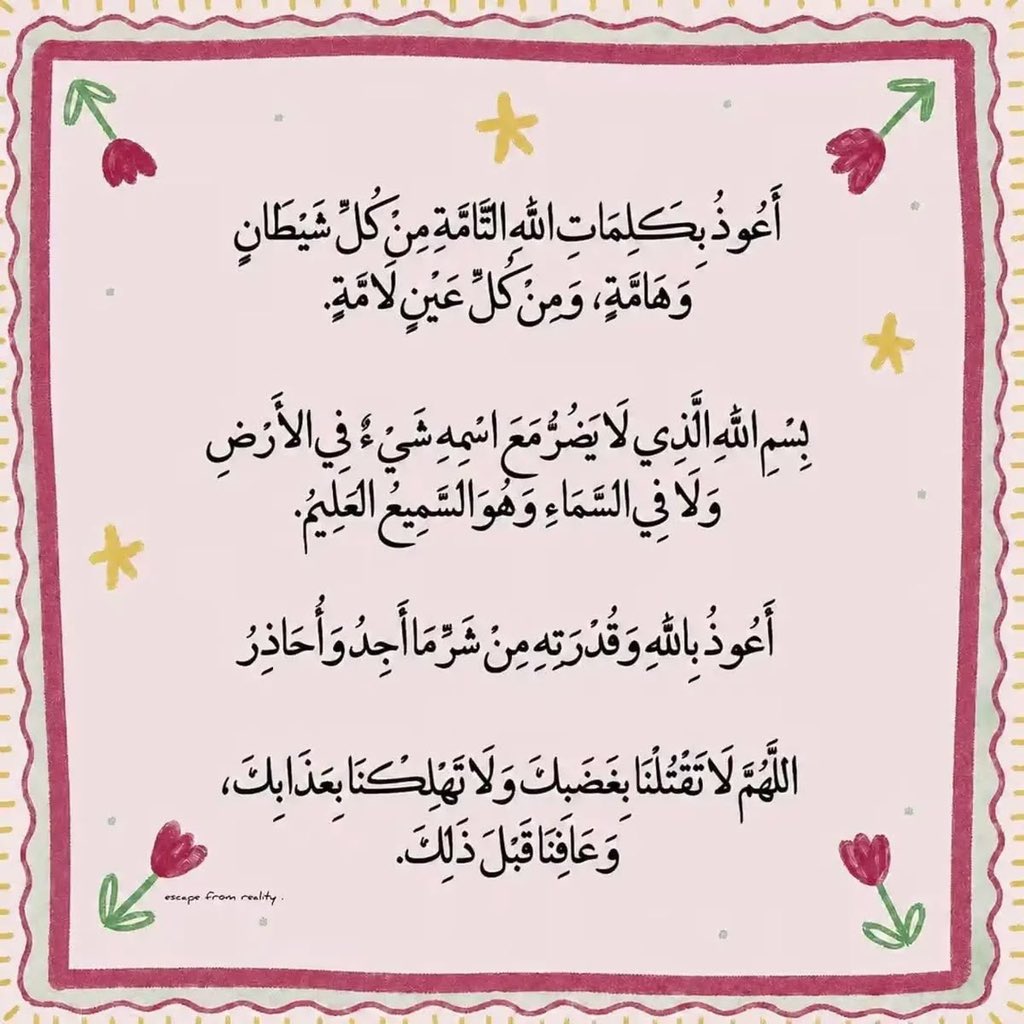 أَعُوذُ بِكَلِمَاتِ اللهِ التَّامَّةِ مِنْ كُلِّ شَيْطَانٍ
وَهَامَّةٍ، وَمِنْ كُلِّ عَيْنٍ لَامَّةٍ.
بِسْمِ اللهِ الَّذِي لَا يَضُرُّ مَعَ اسْمِهِ شَيْءٌ فِي الأَرْضِ
وَلَا فِي السَّمَاءِ وَهُوَ السَّمِيعُ العَلِيمُ.
أَعُوذُ بِاللهِ وَقُدْرَتِهِ مِنْ شَرِّ مَا أَجِدُ وَأُحَاذِرُ
اللَّهُمَّ لَا تَقْتُلْنَا بِغَضَبِكَ وَلَا تَهْلِكْنَا بِعَذَابِكَ،
وَعَافِنَا قَبْلَ ذَلِكَ.
escape from reality.